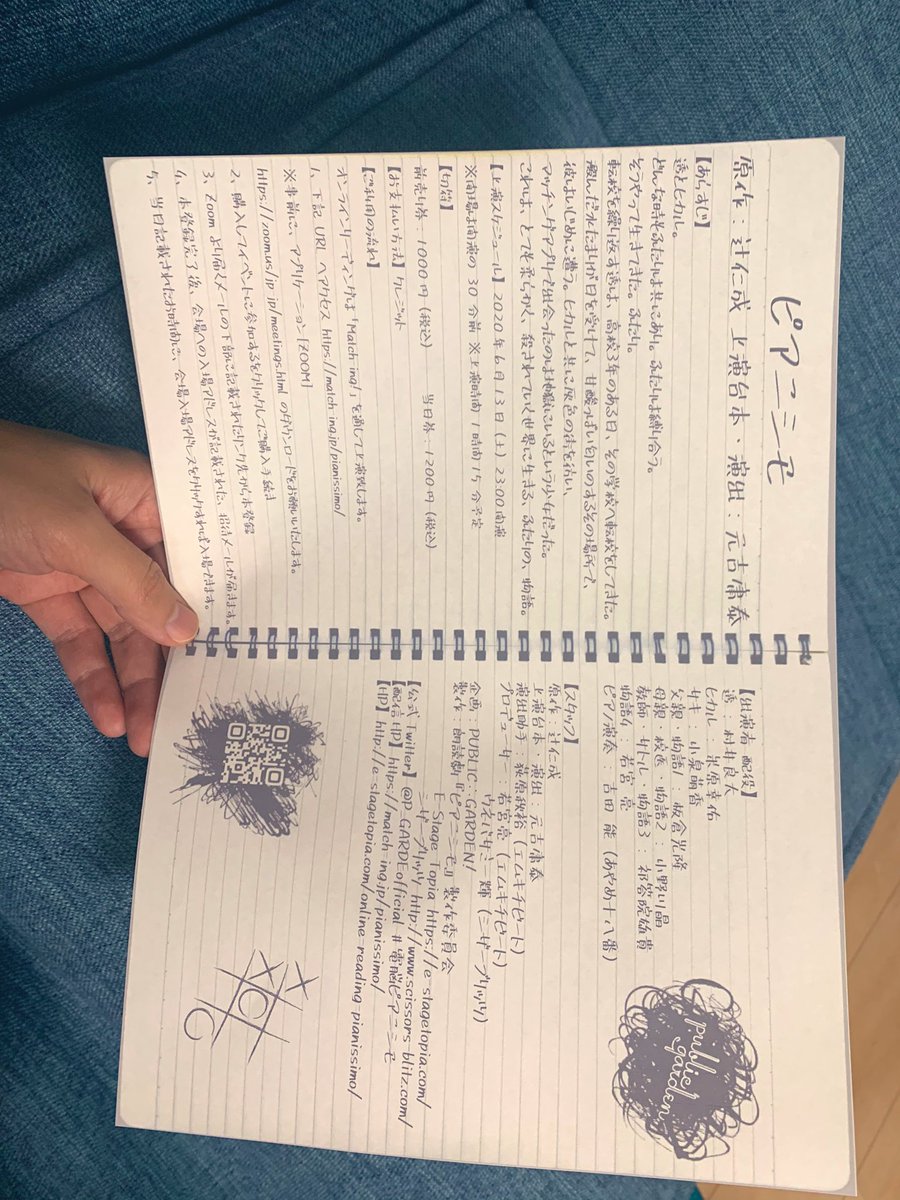 ピアニシモ
原作：辻仁成 上演台本・演出：元吉庸泰
【あらすじ】
透とヒカル。
どんな時もふたりは共にあり。ふたりは縛り合う。
そうやって生きてきた。ふたり。
転校を繰り返す透は、高校3年のある日、その学校へ転校をしてきた。
澱んだ水たまりが日を受けて、甘酸っぱい匂いのするその場所で、
彼はいじめに遭う。ヒカルと共に灰色の街を彷い、
マッチングアプリで出会ったのは地獄にいるという少女だった。
これは、とても柔らかく、殺されていく世界に生きる、ふたりの、物語。
【上演スケジュール】2020年6月13日（土）23:00開演
※開場は開演の30分前 ※上演時間1時間15分予定
【切符】
前売り券 1000円（税込） 当日券 1200円（税込）
【お支払い方法】クレジット
【ご利用の流れ】
オンラインリーディングは「Match ing!」を通して上演致します。
1、下記URLへアクセス https://match ing.jp/pianissimo/
※事前に、アプリケーション「ZOOM」
https://zoom.us/jp jp/meetings.html のダウンロードをお願いいたします。
2、購入してイベントに参加するをクリックしてご購入手続き
3、Zoomより届くメールの下部に記載されたリンク先から本登録
4、本登録完了後、会場への入場アドレスが記載された、招待メールが届きます。
5、当日記載されたお時間に、会場入場アドレスをクリックすれば入場できます。
【出演者 配役】
透：村井良大
ヒカル：栗原大佑
サキ：小泉萌香
父親・物語1：板倉光隆
母親・校医・物語2：小野川晶
教師・サトル・物語3：祁答院雄貴
物語4：若宮亮
ピアノ演奏：吉田能（あやめ十八番）
【スタッフ】
原作：辻仁成
上演台本・演出：元吉庸泰
演出助手：荻原秋裕（エムキチビート）
プロデューサー 若宮亮（エムキチビート）
ウネバサミ 輝（シザーブリッツ）
企画：PUBLIC∴GARDEN!
製作：朗読劇『ピアニシモ』製作委員会
E−Stage Topia https://e stagetopia.com/
シザーブリッツ http://www.scissors blitz.com/
【公式Twitter】@P_GARDEofficial #電脳ピアニシモ
【配信HP】https://match ing.jp/pianissimo/
【HP】http://e stagetopia.com/online reading pianissimo/
public
garden